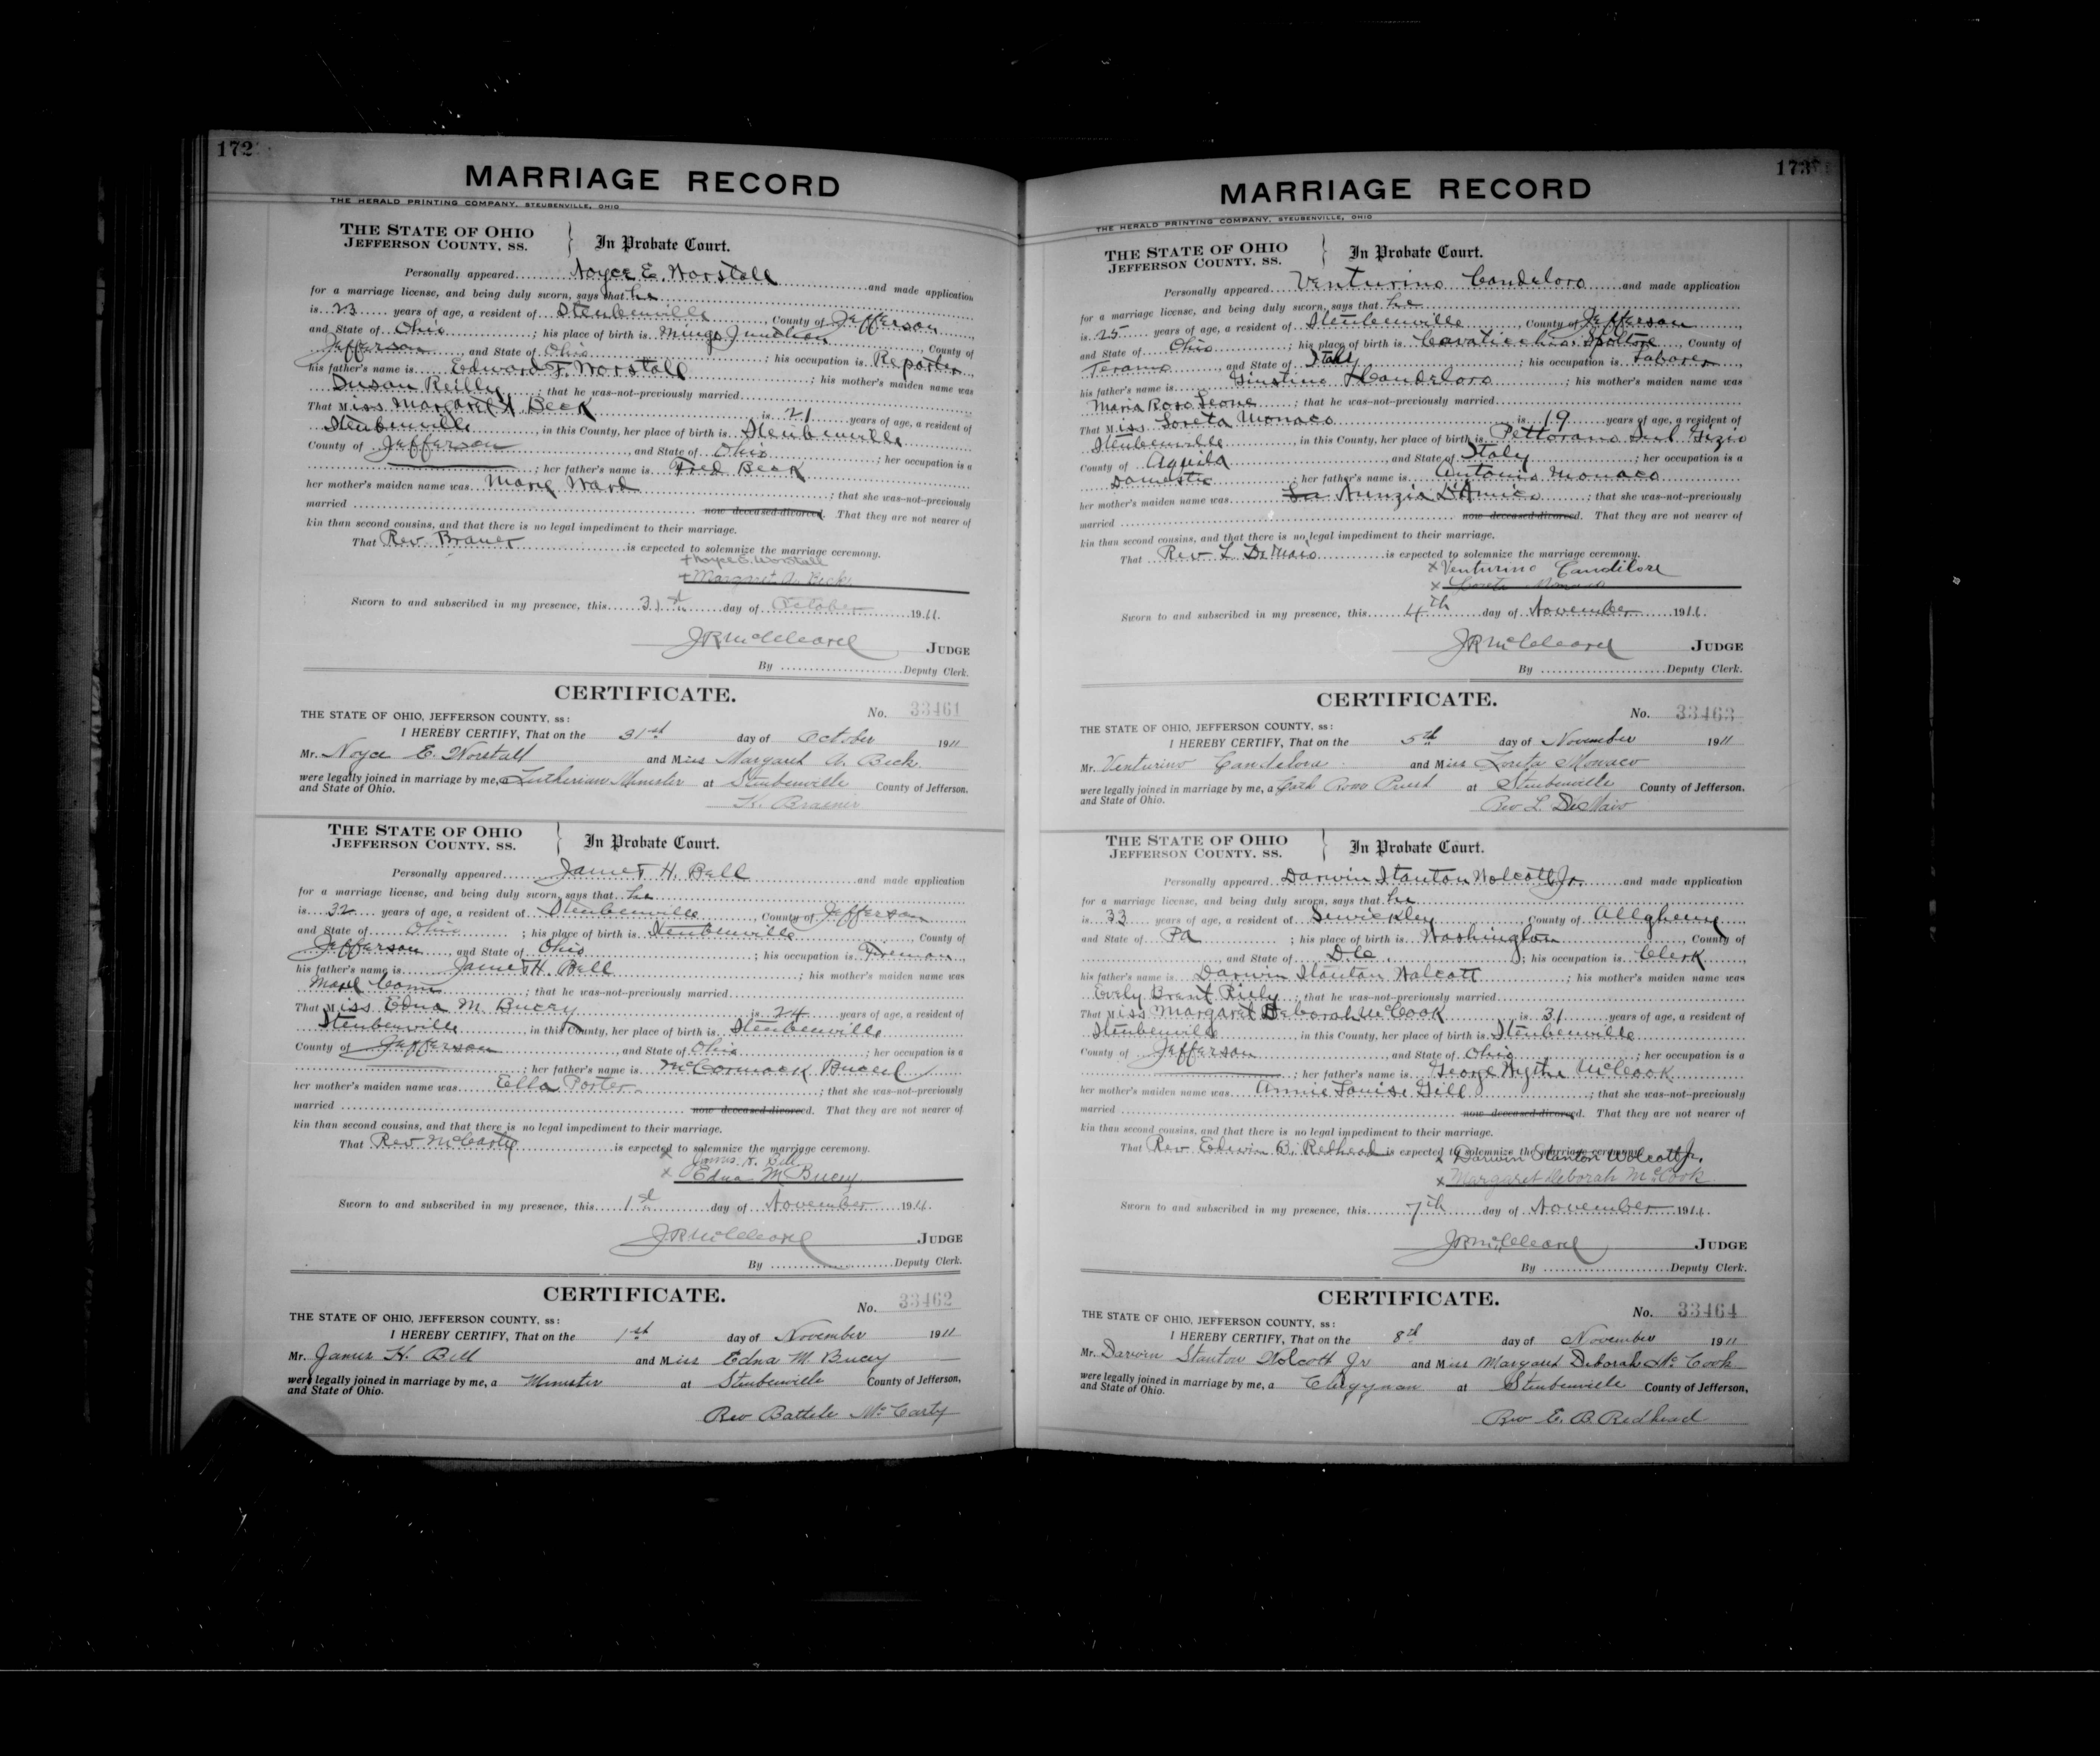 172
MARRIAGE RECORD
THE HERALD PRINTING COMPANY, STEUBENVILLE, OHIO
THE STATE OF OHIO
JEFFERSON COUNTY, SS.
In Probate Court.
Personally appeared Noyce E. Worstall and made application
for a marriage license, and being duly sworn, says that he
is 23 years of age, a resident of Steubenville, County of Jefferson
and State of Ohio; his place of birth is Mingo Junction, County of
Jefferson, and State of Ohio; his occupation is Reporter,
his father's name is Edward F. Worstall; his mother's maiden name was
Susan Reilly; that he was-not-previously married
That Miss Margaret A Beck is 21 years of age, a resident of
Steubenville, in this County, her place of birth is Steubenville
County of Jefferson, and State of Ohio; her occupation is a
; her father's name is Fred Beck
her mother's maiden name was Mary Ward; that she was-not-previously
married now deceased-divorced. That they are not nearer of
kin than second cousins, and that there is no legal impediment to their marriage.
That Rev. Brauer is expected to solemnize the marriage ceremony.
x Noyce E. Worstall
x Margaret A. Beck
Sworn to and subscribed in my presence, this 31st day of October 1911.
JR McCleard JUDGE
By Deputy Clerk.
CERTIFICATE.
No. 33461
THE STATE OF OHIO, JEFFERSON COUNTY, ss:
I HEREBY CERTIFY, That on the 31st day of October 1911
Mr. Noyce E. Worstall and Miss Margaret A. Beck
were legally joined in marriage by me, a Lutherian Minister at Steubenville County of Jefferson,
and State of Ohio.
THE STATE OF OHIO
JEFFERSON COUNTY, SS.
In Probate Court.
Personally appeared James H. Bell and made application
for a marriage license, and being duly sworn, says that he
is 32 years of age, a resident of Steubenville, County of Jefferson
and State of Ohio; his place of birth is Steubenville, County of
Jefferson, and State of Ohio; his occupation is Fireman,
his father's name is James H. Bell; his mother's maiden name was
; that he was-not-previously married
That Miss Edna M. Bucey is 24 years of age, a resident of
Steubenville in this County, her place of birth is Steubenville
County of Jefferson, and State of Ohio; her occupation is a
; her father's name is McCormack
her mother's maiden name was Ella Porter; that she was-not-previously
married now deceased-divorced. That they are not nearer of
kin than second cousins, and that there is no legal impediment to their marriage.
That Rev McCarty is expected to solemnize the marriage ceremony.
x James H. Bell
x Edna M Bucey
Sworn to and subscribed in my presence, this 1st day of November 1911.
JR McCleard JUDGE
By Deputy Clerk.
CERTIFICATE.
No. 33462
THE STATE OF OHIO, JEFFERSON COUNTY, ss:
I HEREBY CERTIFY, That on the 1st day of November 1911
Mr. James H. Bell and Miss Edna M. Bucey
were legally joined in marriage by me, a Minister at Steubenville County of Jefferson,
and State of Ohio.
Rev Battele McCarty
173
MARRIAGE RECORD
THE HERALD PRINTING COMPANY, STEUBENVILLE, OHIO
THE STATE OF OHIO
JEFFERSON COUNTY, SS.
In Probate Court.
Personally appeared Venturino Candeloro and made application
for a marriage license, and being duly sworn, says that he
is 25 years of age, a resident of Steubenville, County of Jefferson,
and State of Ohio; his place of birth is Spoltore, County of
Teramo, and State of Italy; his occupation is Laborer,
his father's name is Giustino Candeloro; his mother's maiden name was
Maria Rosa Leone; that he was-not-previously married
That Miss Loreta Monaco is 19 years of age, a resident of
Steubenville in this County, her place of birth is Pettorano Sul Gizio
County of Aquila, and State of Italy; her occupation is a
Domestic; her father's name is Antonio Monaco
her mother's maiden name was Nunzia D'Amico; that she was-not-previously
married now deceased-divorced. That they are not nearer of
kin than second cousins, and that there is no legal impediment to their marriage.
That Rev L. DeMaio is expected to solemnize the marriage ceremony.
x Venturino Candilore
x Loreta Monaco
Sworn to and subscribed in my presence, this 4th day of November 1911.
JR McCleard JUDGE
By Deputy Clerk.
CERTIFICATE.
No. 33463
THE STATE OF OHIO, JEFFERSON COUNTY, ss:
I HEREBY CERTIFY, That on the 5th day of November 1911
Mr. Venturino Candelora and Miss Loreta Monaco
were legally joined in marriage by me, a Priest at Steubenville County of Jefferson,
and State of Ohio.
Rev L. DeMaio
THE STATE OF OHIO
JEFFERSON COUNTY, SS.
In Probate Court.
Personally appeared Darwin Stanton Wolcott Jr. and made application
for a marriage license, and being duly sworn, says that he
is 33 years of age, a resident of Sewickley County of Allegheny
and State of Pa; his place of birth is Washington, County of
, and State of D.C.; his occupation is Clerk,
his father's name is Darwin Stanton Wolcott; his mother's maiden name was
Evely Brent Riely; that he was-not-previously married
That Miss Margaret Deborah McCook is 31 years of age, a resident of
Steubenville, in this County, her place of birth is Steubenville
County of Jefferson, and State of Ohio; her occupation is a
; her father's name is George Wythe McCook
her mother's maiden name was Annie Louise Gill; that she was-not-previously
married now deceased-divorced. That they are not nearer of
kin than second cousins, and that there is no legal impediment to their marriage.
That Rev Edwin B. Redhead is expected to solemnize the marriage ceremony.
x Darwin Stanton Wolcott Jr.
x Margaret Deborah McCook
Sworn to and subscribed in my presence, this 7th day of November 1911.
JR McCleard JUDGE
By Deputy Clerk.
CERTIFICATE.
No. 33464
THE STATE OF OHIO, JEFFERSON COUNTY, ss:
I HEREBY CERTIFY, That on the 8th day of November 1911
Mr. Darwin Stanton Wolcott Jr and Miss Margaret Deborah McCook
were legally joined in marriage by me, a Clergyman at Steubenville County of Jefferson,
and State of Ohio.
Rev E. B. Redhead